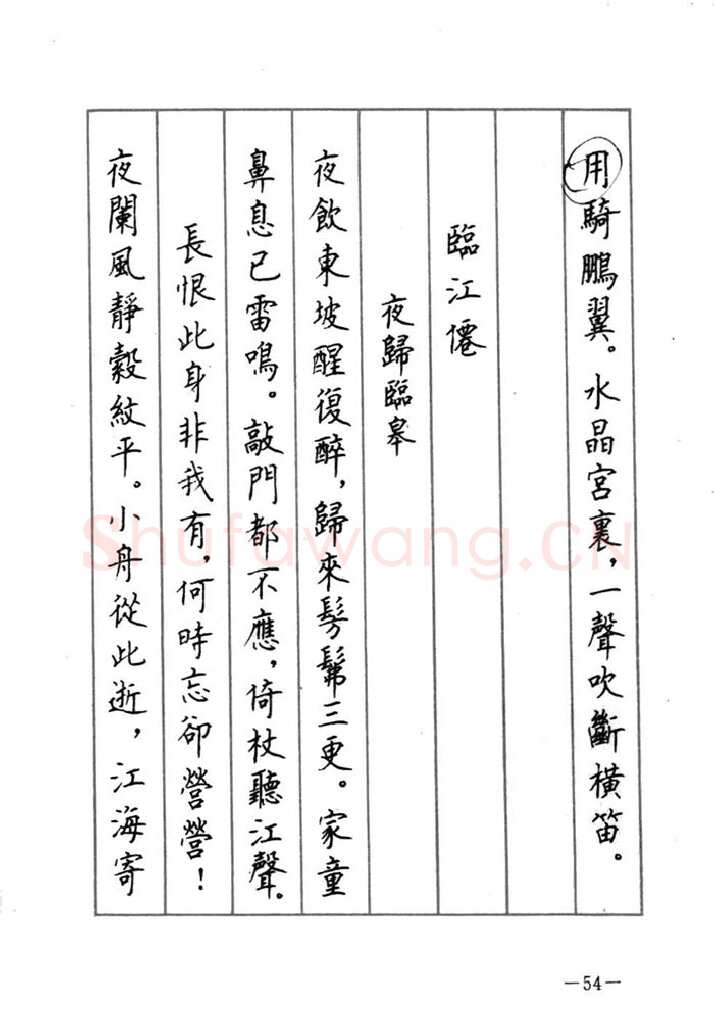 用騎鵬翼。水晶宮裏，一聲吹斷橫笛。
臨江僊
夜歸臨皋
夜飲東坡醒復醉，歸來髣髴三更。家童
鼻息已雷鳴。敲門都不應，倚杖聽江聲。
長恨此身非我有，何時忘卻營營！
夜闌風靜縠紋平。小舟從此逝，江海寄
—54—
Shufawang.CN